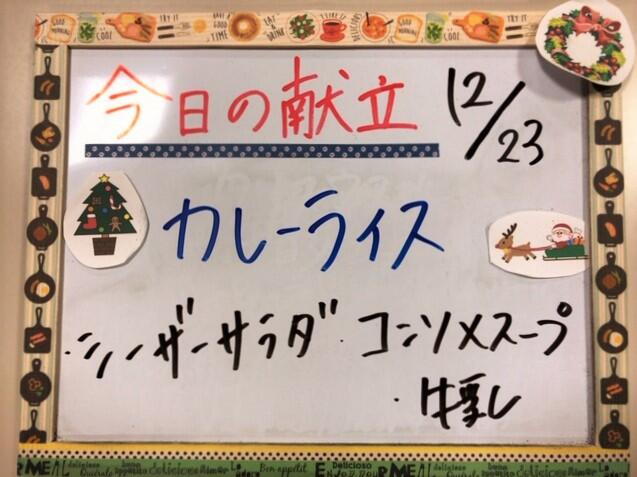 今日の献立 12/23
カレーライス
・シーザーサラダ ・コンソメスープ
・牛乳
Delicioso
Bon appétit